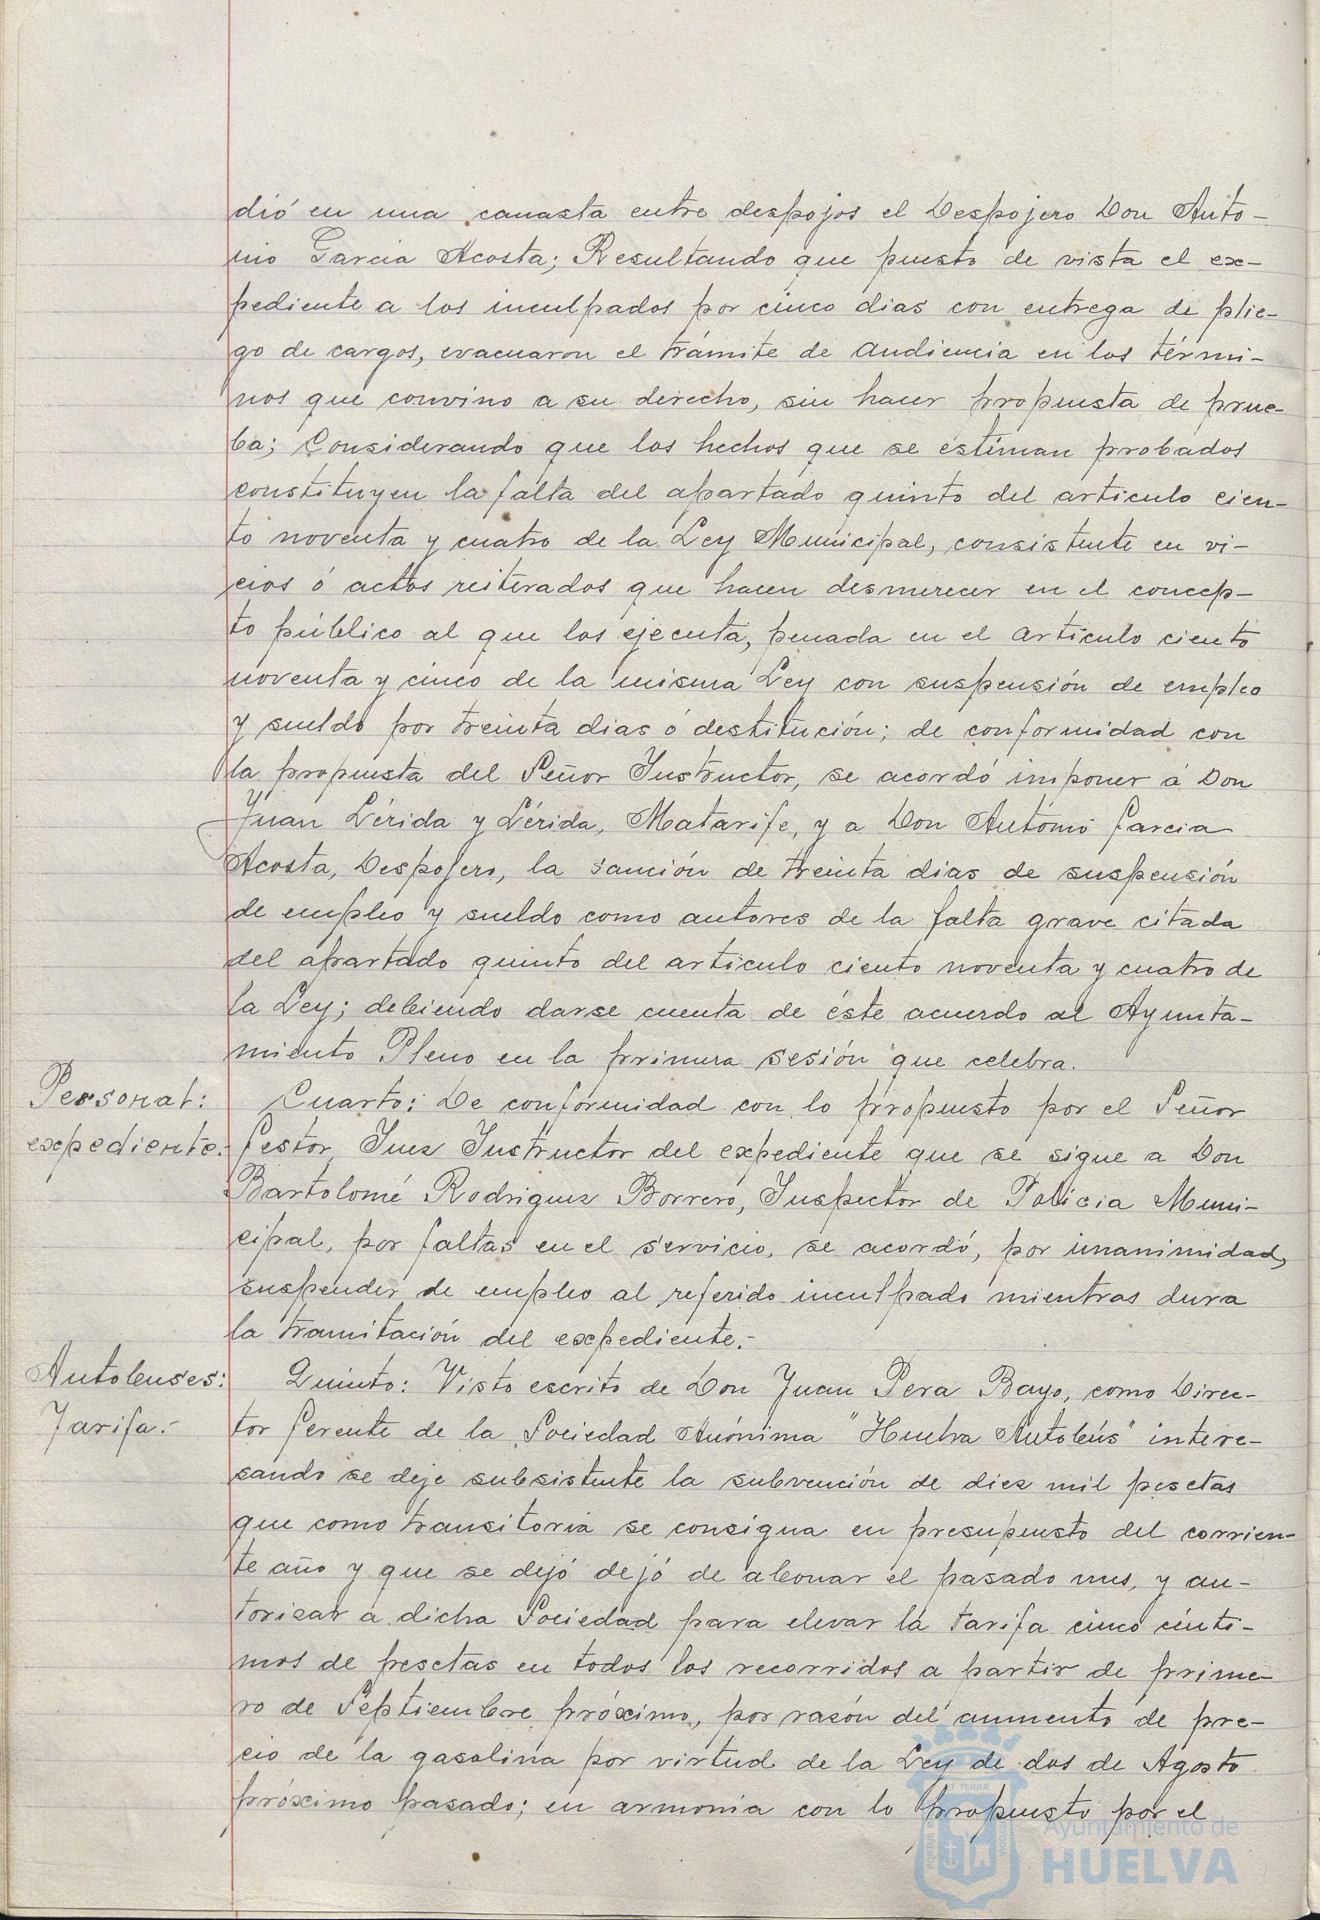 dió en una canasta entre despojos el Despojero Don Anto-
nio Garcia Acosta; Resultando que puesto de vista el ex-
pediente a los inculpados por cinco dias con entrega de plie-
go de cargos, evacuaron el trámite de audiencia en los térmi-
nos que convino a su derecho, sin hacer propuesta de prue-
ba; Considerando que los hechos que se estiman probados
constituyen la falta del apartado quinto del articulo cien-
to noventa y cuatro de la Ley Municipal, consistente en vi-
cios ó actos reiterados que hacen desmerecer en el concep-
to público al que los ejecuta, penada en el articulo ciento
noventa y cinco de la misma Ley con suspensión de empleo
y sueldo por treinta dias ó destitución; de conformidad con
la propuesta del Señor Instructor, se acordó imponer á Don
Juan Lérida y Lérida, Matarife, y a Don António Garcia
Acosta, Despojero, la sanción de treinta dias de suspensión
de empleo y sueldo como autores de la falta grave citada
del apartado quinto del articulo ciento noventa y cuatro de
la Ley; debiendo darse cuenta de éste acuerdo al Ayunta-
miento Pleno en la primera sesión que celebra.
Personal:
expediente.-
Cuarto: De conformidad con lo propuesto por el Señor
Gestor, Juez Instructor del expediente que se sigue a Don
Bartolomé Rodriguez Borrero, Inspector de Policia Muni-
cipal, por faltas en el servicio, se acordó, por unanimidad,
suspender de empleo al referido inculpado mientras dura
la tramitación del expediente.-
Autobuses:
Tarifa.-
Quinto: Visto escrito de Don Juan Pera Bayo, como Direc-
tor Gerente de la Sociedad Anónima "Huelva Autobús" intere-
sando se deje subsistente la subvención de diez mil pesetas
que como transitoria se consigna en presupuesto del corrien-
te año y que se dejó dejó de abonar el pasado mes, y au-
torizar a dicha Sociedad para elevar la tarifa cinco cénti-
mos de pesetas en todos los recorridos a partir de prime-
ro de Septiembre próximo, por razón del aumento de pre-
cio de la gasolina por virtud de la Ley de dos de Agosto
próximo pasado; en armonia con lo propuesto por el
Ayuntamiento de
HUELVA